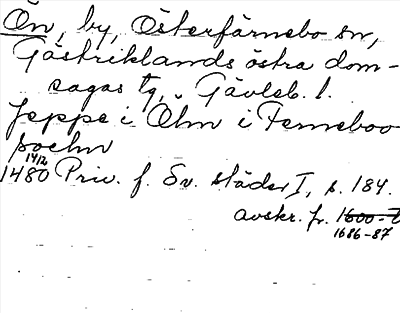 Ön, by, Österfärnebo sn,
Gästriklands östra dom-
sagas tg, Gävleb. l.
Jeppe i Öhn i Ferneboo
soehn
1412
1480 Priv. f. Sv. städer I, s. 184.
avskr. fr. 1600-t
1686-87